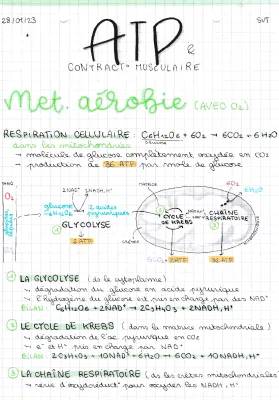 28/04/23
SVT
ATP &
CONTRACT° MUSCULAIRE
Met. aérobie (AVEC O₂)
RESPIRATION CELLULAIRE : C₆H₁₂O₆ + 6O₂ → 6CO₂ + 6H₂O
dans les mitochondries
→ molécule de glucose complètement oxydée en CO₂
→ production de 36 ATP par mole de glucose
2NAD⁺ 2NADH,H⁺
MATRICE
6O₂
6H₂O
O₂
glucose
C₆H₁₂O₆
2 acides
pyruviques
GLYCOLYSE
2 ATP
CYCLE
DE KREBS
CHAÎNE
RESPIRATOIRE
6CO₂
2 ATP
32 ATP
1 LA GLYCOLYSE (ds le cytoplasme)
→ dégradation du glucose en acide pyruvique
→ l'hydrogène du glucose est pris en charge par des NAD⁺
BILAN : C₆H₁₂O₆ + 2NAD⁺ → 2C₃H₄O₃ + 2NADH,H⁺
2 LE CYCLE DE KREBS (dans la matrice mitochondriale)
→ dégradation de l'ac. pyruvique en CO₂
→ e⁻ et H⁺ pris en charge par NAD⁺
BILAN : 2C₃H₄O₃ + 10NAD⁺ + 6H₂O → 6CO₂ + 10NADH,H⁺
3 LA CHAÎNE RESPIRATOIRE (ds les crêtes mitochondriales)
→ série d'oxydoréduct° pour oxyder les NADH,H⁺